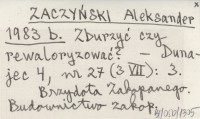 ZACZYŃSKI Aleksander
1983 b. Zburzyć czy
rewaloryzować? – Duna-
jec 4, nr 27 (3 VII): 3.
Brzydota Zakopanego.
Budownictwo zakop.